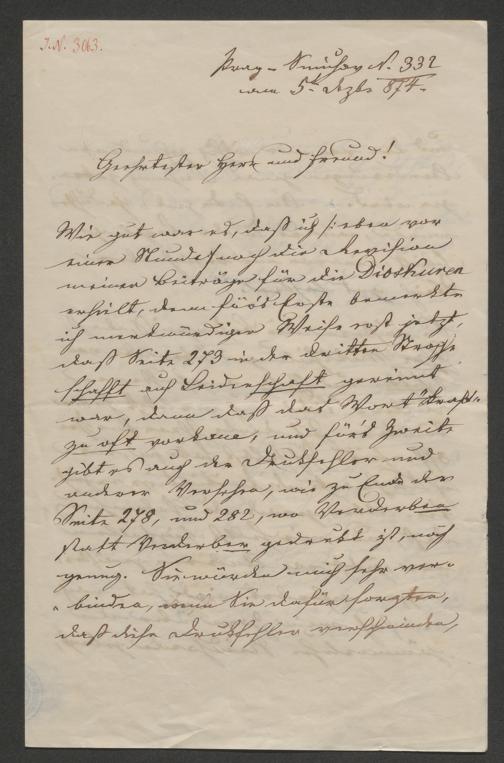 I.N. 3063.
Prag – Smichov N. 332
am 5t Dezbr 874.
Geehrtester Herr und Freund!
Wie gut war es, daß ich /: eben vor
einer Stunde/ noch die Revision
meiner Beiträge für die Dioskuren
erhielt, denn für's Erste bemerkte
ich merkwürdiger Weise erst jetzt,
daß Seite 273 in der dritten Strophe
schafft auf Leidenschaft gereimt
war, dann daß das Wort "Kraft"
zu oft vorkam, und für's Zweite
gibt es auch der Drukfehler und
anderer Versehen, wie zu Ende der
Seite 278, und 282, wo Verderben
statt Verderber gedrukt ist, noch
genug. Sie würden mich sehr ver-
binden, wenn Sie dafür sorgten,
daß diese Drukfehler verschwinden,